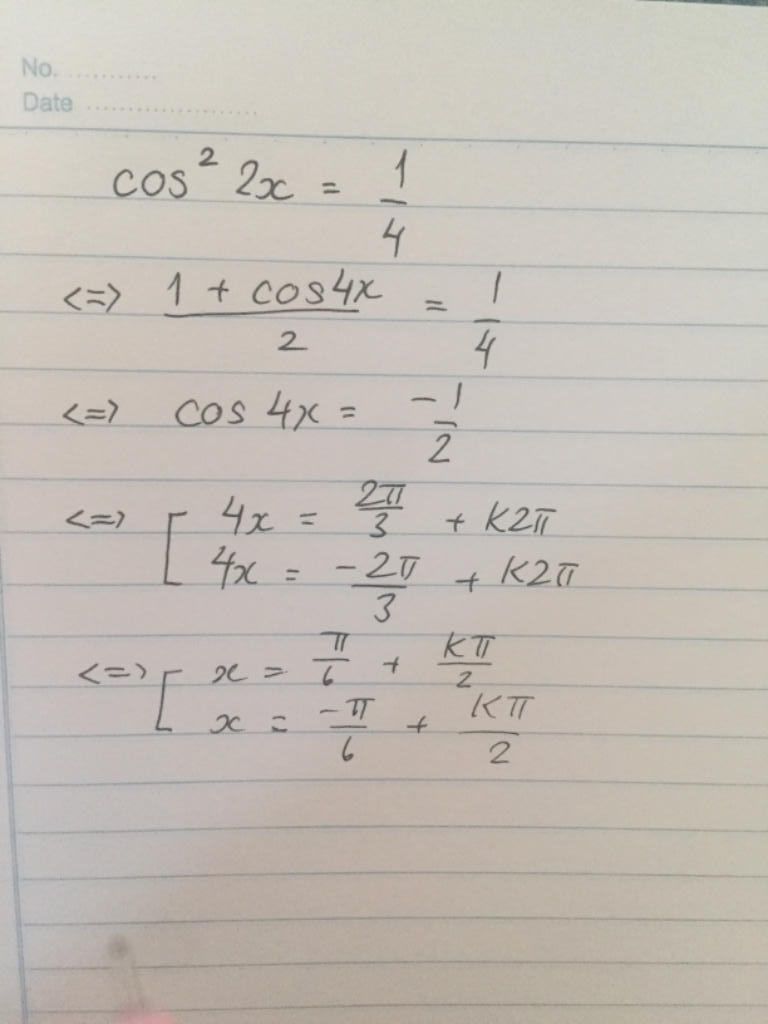 No. ............
Date ........................
cos² 2x = 1/4
<=> (1 + cos4x)/2 = 1/4
<=> cos 4x = -1/2
<=> [ 4x = 2π/3 + K2π
4x = -2π/3 + K2π
<=> [ x = π/6 + Kπ/2
x = -π/6 + Kπ/2